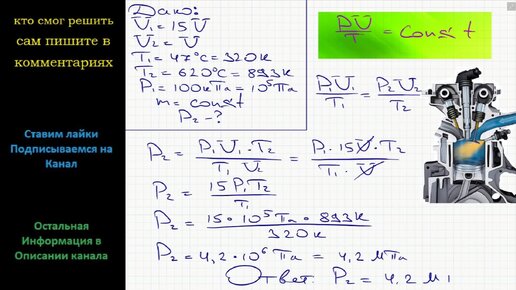 кто смог решить
сам пишите в
комментариях
Ставим лайки
Подписываемся на
Канал
Остальная
Информация в
Описании канала
Дано:
V₁ = 15 V
V₂ = V
T₁ = 47°C = 320 K
T₂ = 620°C = 893 K
P₁ = 100 кПа = 10⁵ Па
m = const
P₂ - ?
PV/T = const
P₁V₁/T₁ = P₂V₂/T₂
P₂ = P₁V₁·T₂/T₁V₂ = P₁·15V·T₂/T₁·V
P₂ = 15P₁T₂/T₁
P₂ = 15·10⁵Па·893К/320К
P₂ = 4,2·10⁶ Па = 4,2 МПа
Ответ: P₂ = 4,2 М